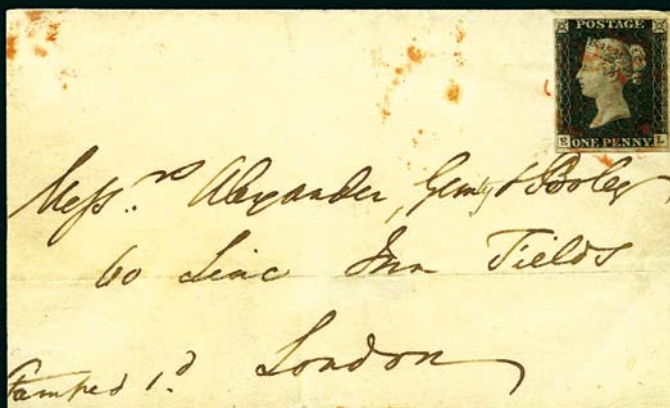 POSTAGE
ONE PENNY L
Mess.rs Alexander,
60 Linc Inn Fields
London
Stamped 1.d